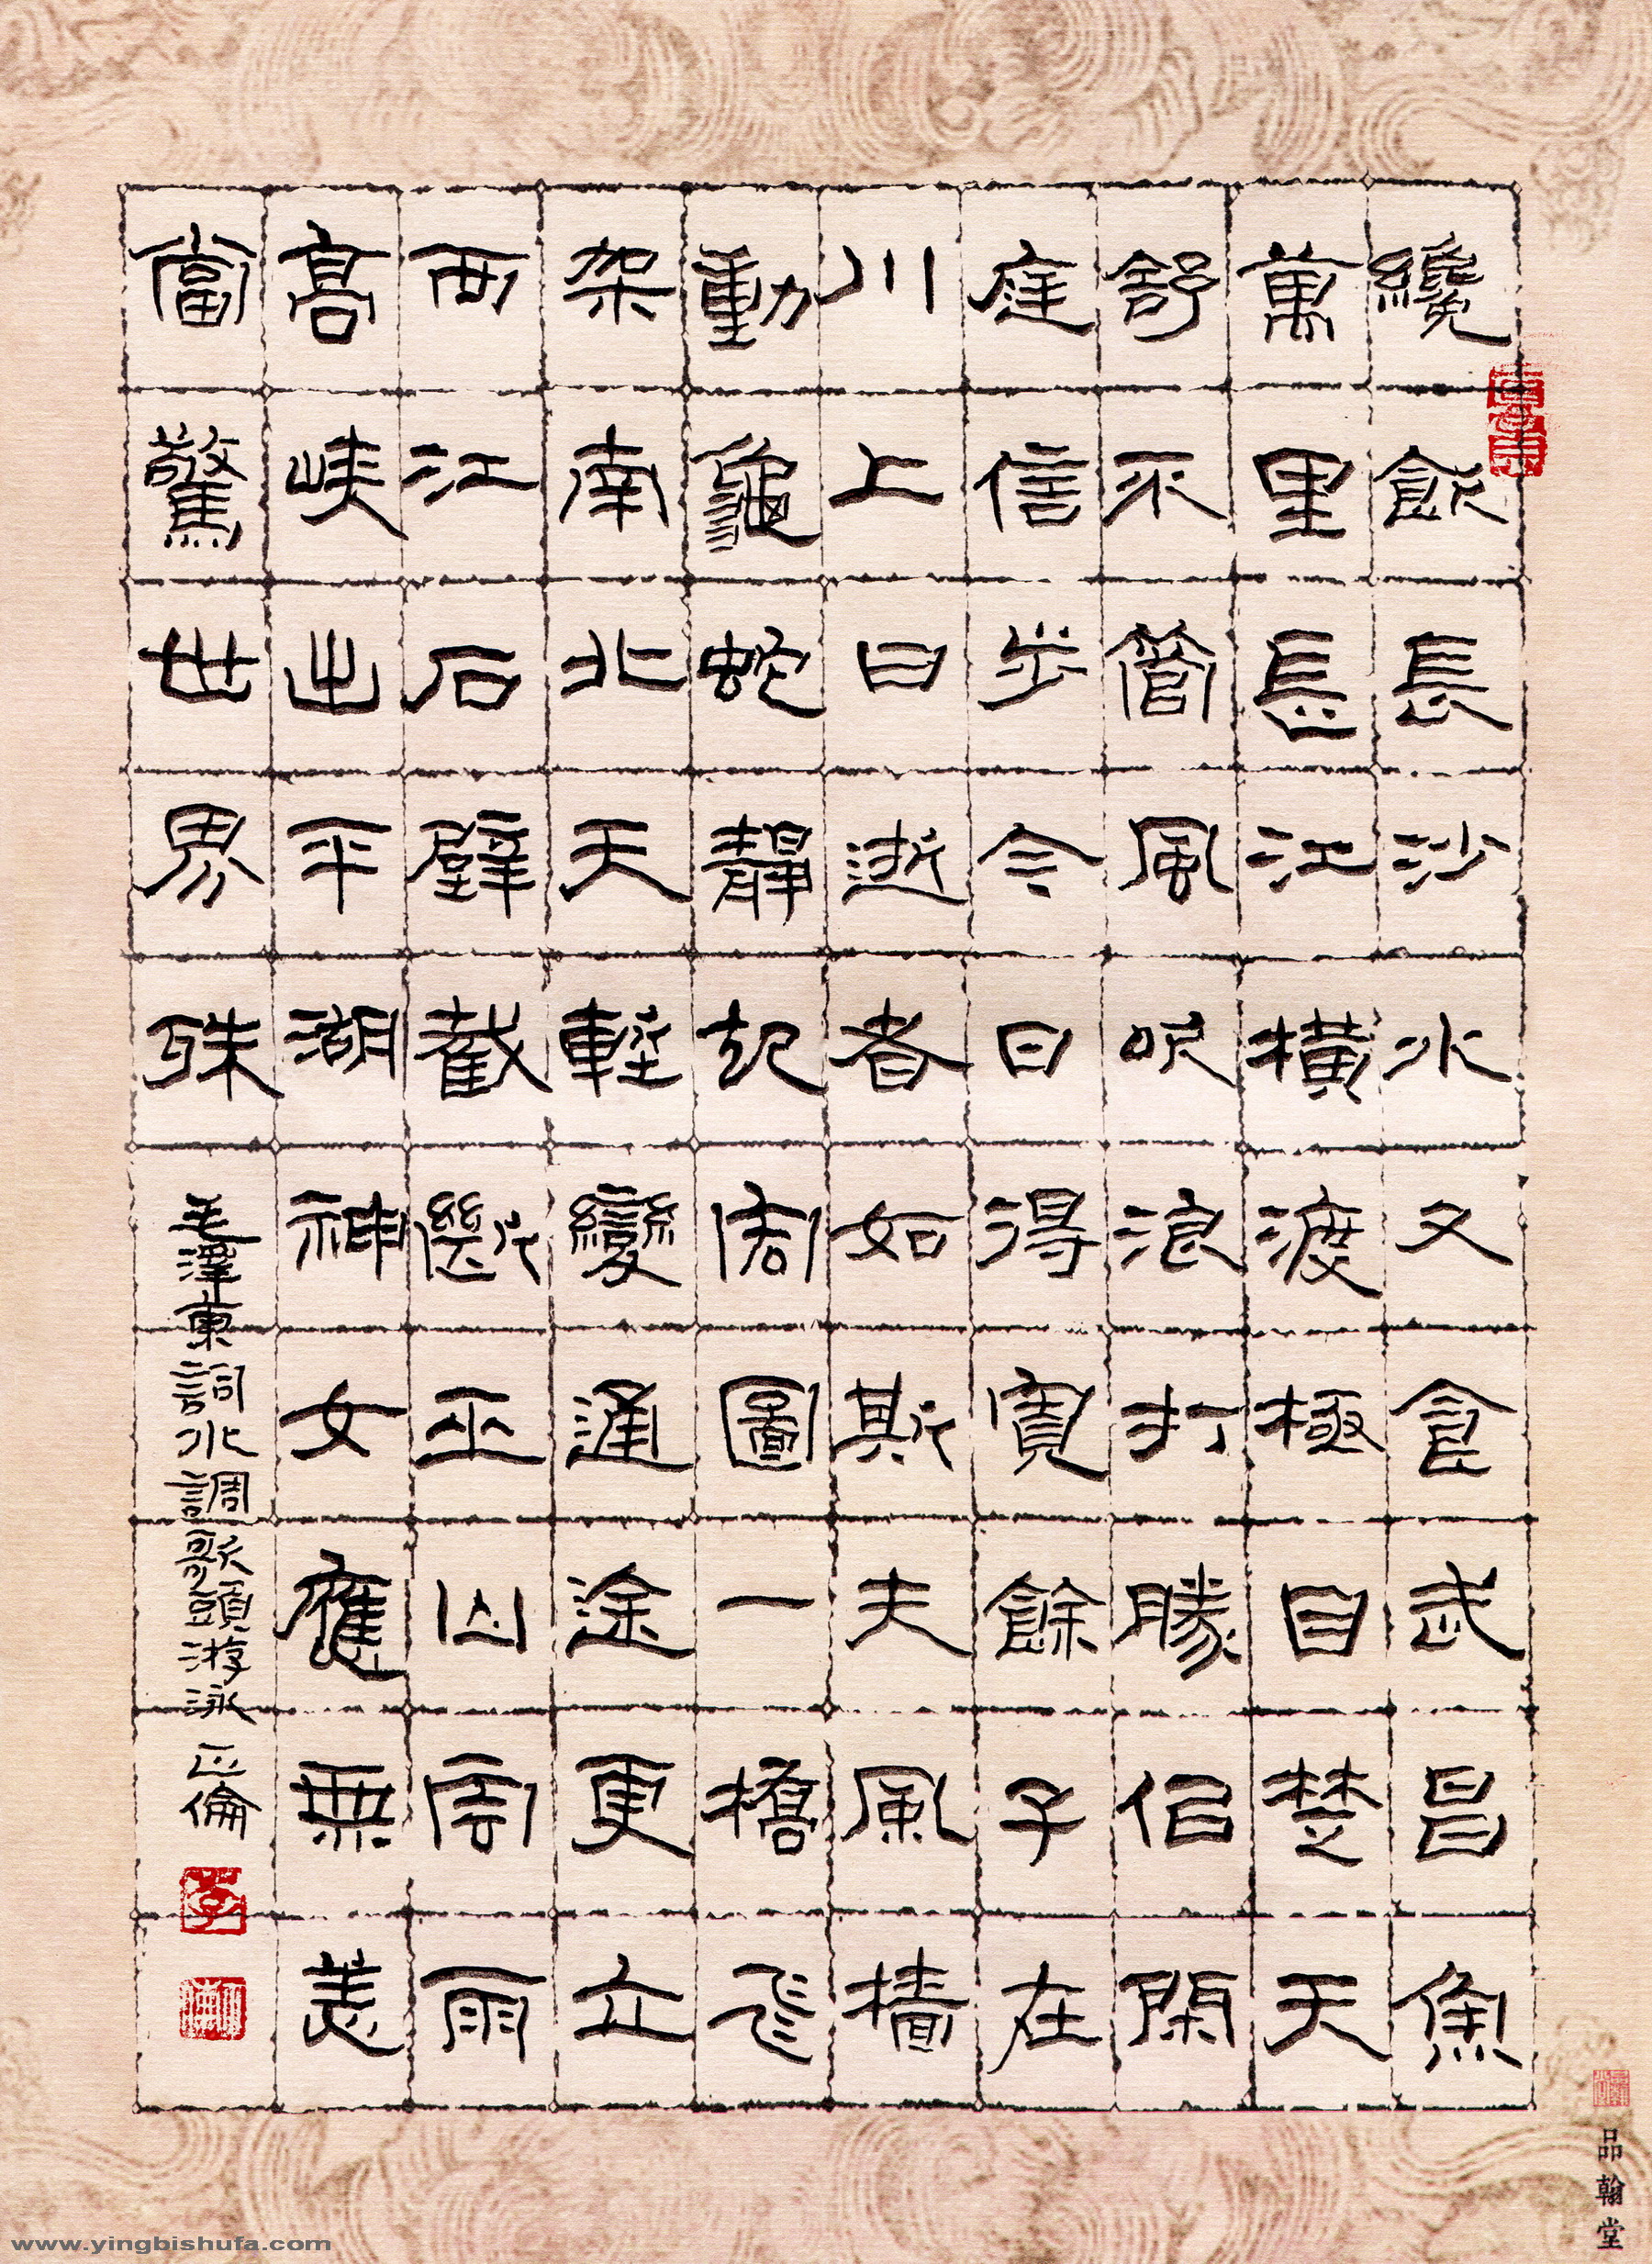 纔飲長沙水又食武昌魚
萬里長江橫渡極目楚天
舒不管風吹浪打勝似閑
庭信步今日得寬餘子在
川上曰逝者如斯夫風檣
動龜蛇靜起宏圖一橋飛
架南北天塹變通途更立
西江石壁截斷巫山雲雨
高峽出平湖神女應無恙
當驚世界殊
毛澤東詞水調歌頭游泳 正倫
品翰堂
www.yingbishufa.com